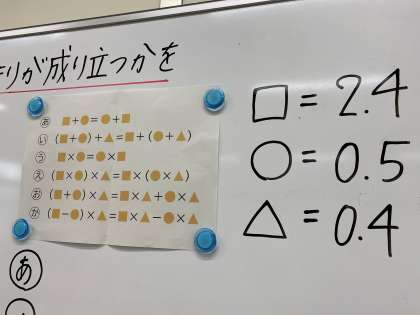 きりが成り立つかを
あ ■+●=●+■
い (■+●)+▲=■+(●+▲)
う ■×●=●×■
え (■×●)×▲=■×(●×▲)
お (■+●)×▲=■×▲+●×▲
か (■-●)×▲=■×▲-●×▲
□=2.4
○=0.5
△=0.4
あ